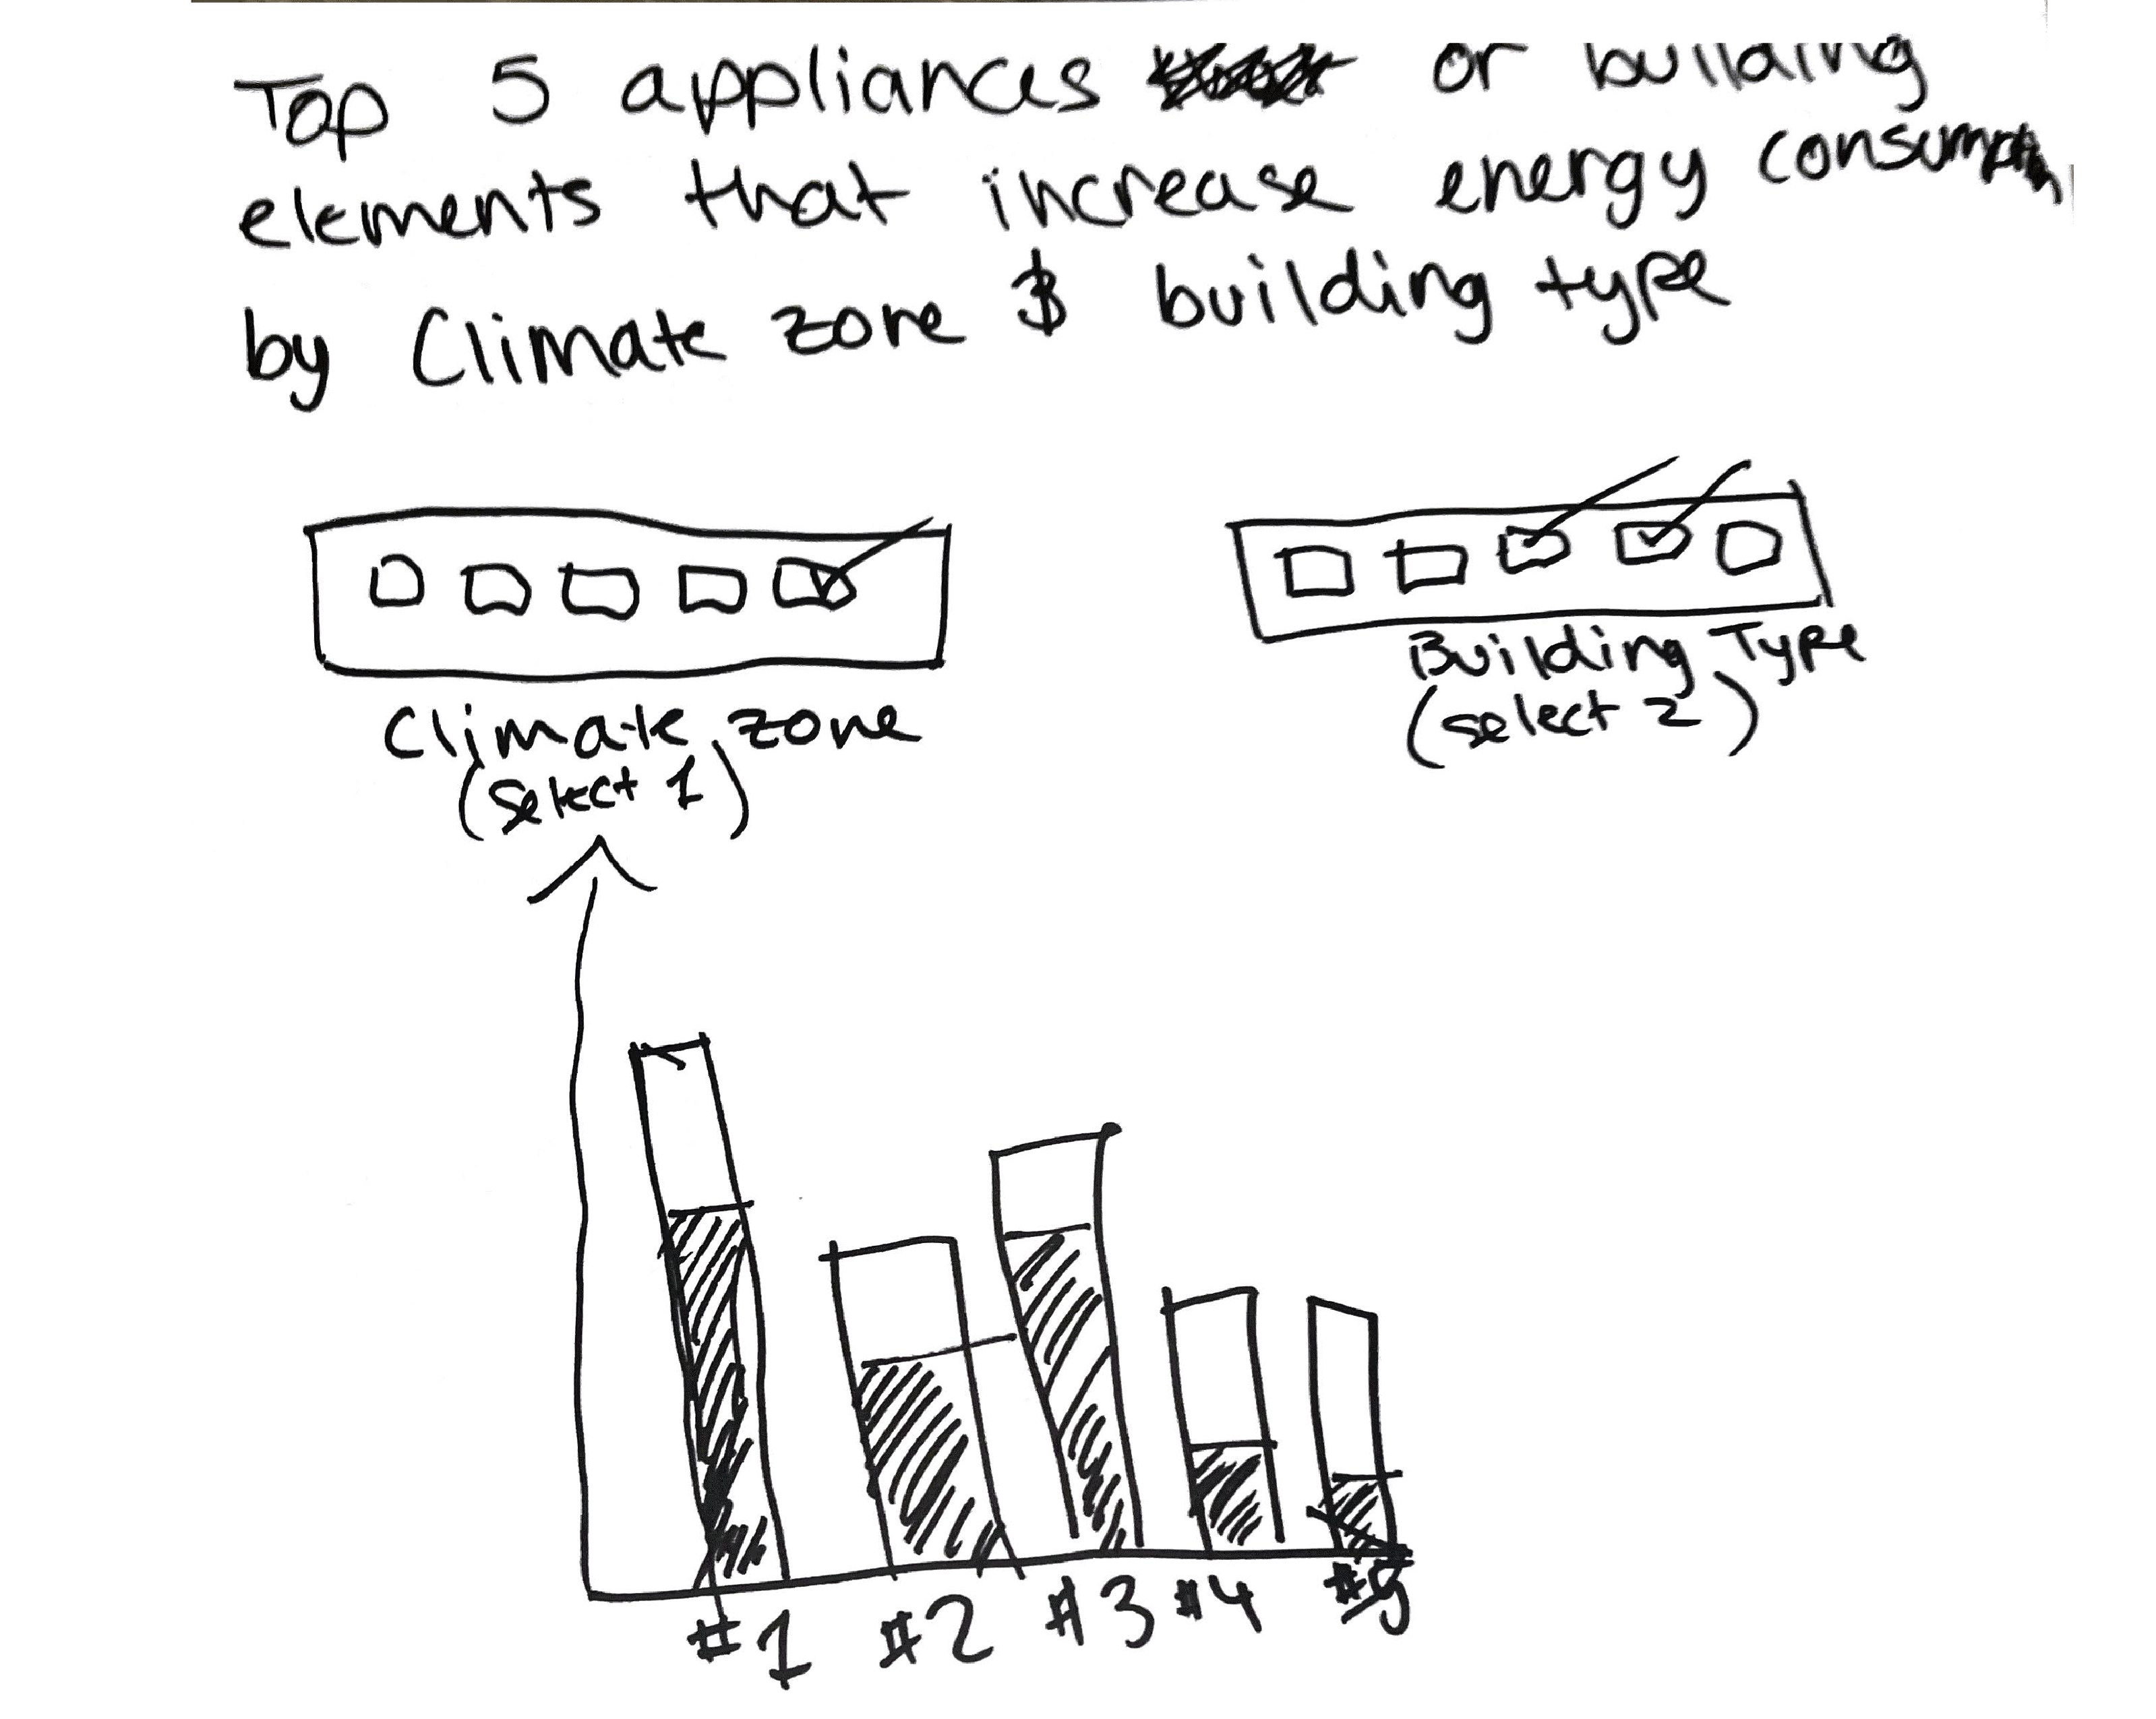 Top 5 appliances or building
elements that increase energy
by Climate zone & building type
Climate zone
(select 1)
Building Type
(select 2)
#1 #2 #3 #4 #5